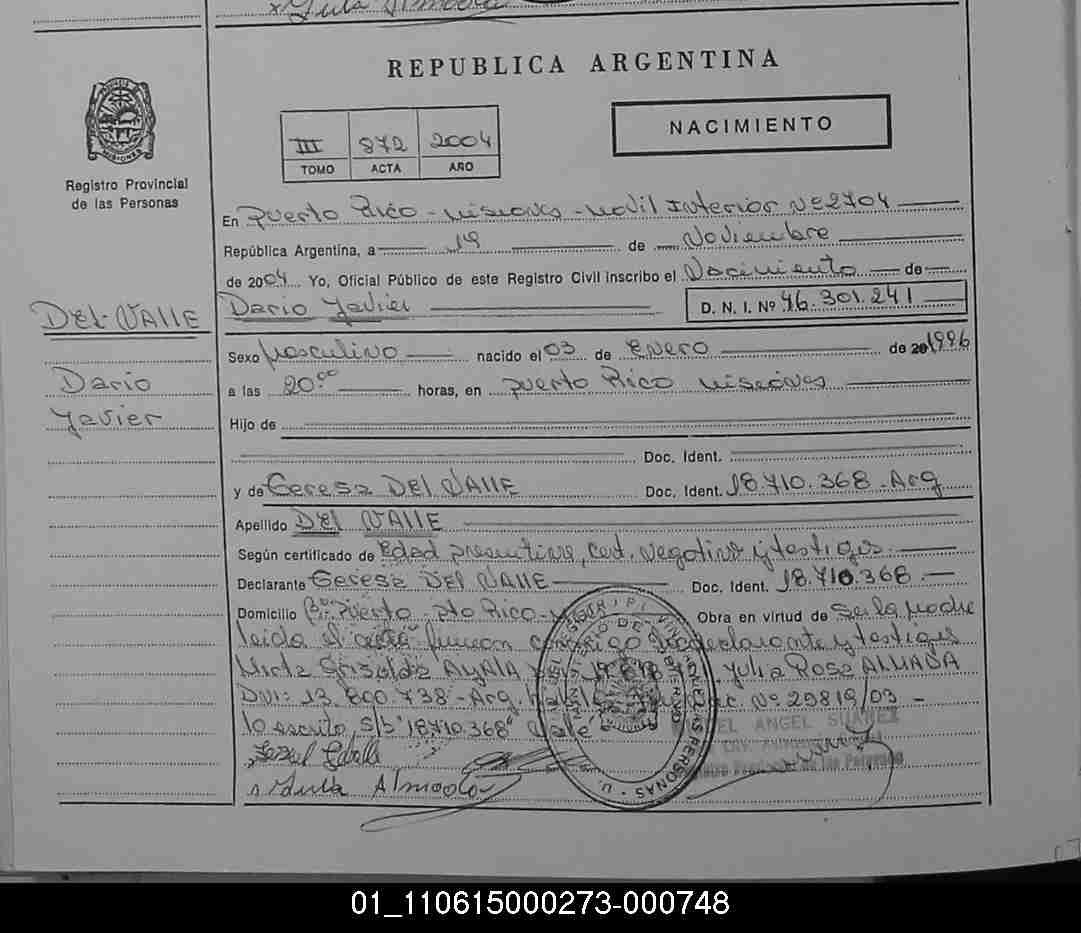 REPUBLICA ARGENTINA
NACIMIENTO
III 872 2004
TOMO ACTA AÑO
Registro Provincial
de las Personas
En Puerto Rico - Misiones - Movil Interior Nº 2704
República Argentina, a 19 de Noviembre
de 2004 Yo, Oficial Público de este Registro Civil inscribo el Nacimiento de
Dario Javier D. N. I. Nº 46.301.241
DEL VALLE
Dario
Javier
Sexo Masculino nacido el 03 de Enero de 1996
a las 20:00 horas, en Puerto Rico Misiones
Hijo de
Doc. Ident.
y de Teresa DEL VALLE Doc. Ident. 18.710.368 - Arg
Apellido DEL VALLE
Según certificado de Edad presuntiva, Cert. Negativo y testigos.
Declarante Teresa DEL VALLE Doc. Ident. 18.710.368.
Domicilio Bº Puerto - Pto Rico - Obra en virtud de Ser la Madre
leida el acta firman conmigo la declarante y testigos
Mirta Griselda AYALA Julia Rosa ALMADA
DNI: 13.800.738 - Arg. Nº 29819/03 -
lo escrito S/b "18.710.368" Vale
MIGUEL ANGEL SUAREZ
Registro Provincial de las Personas
Julia Almada
01_110615000273-000748